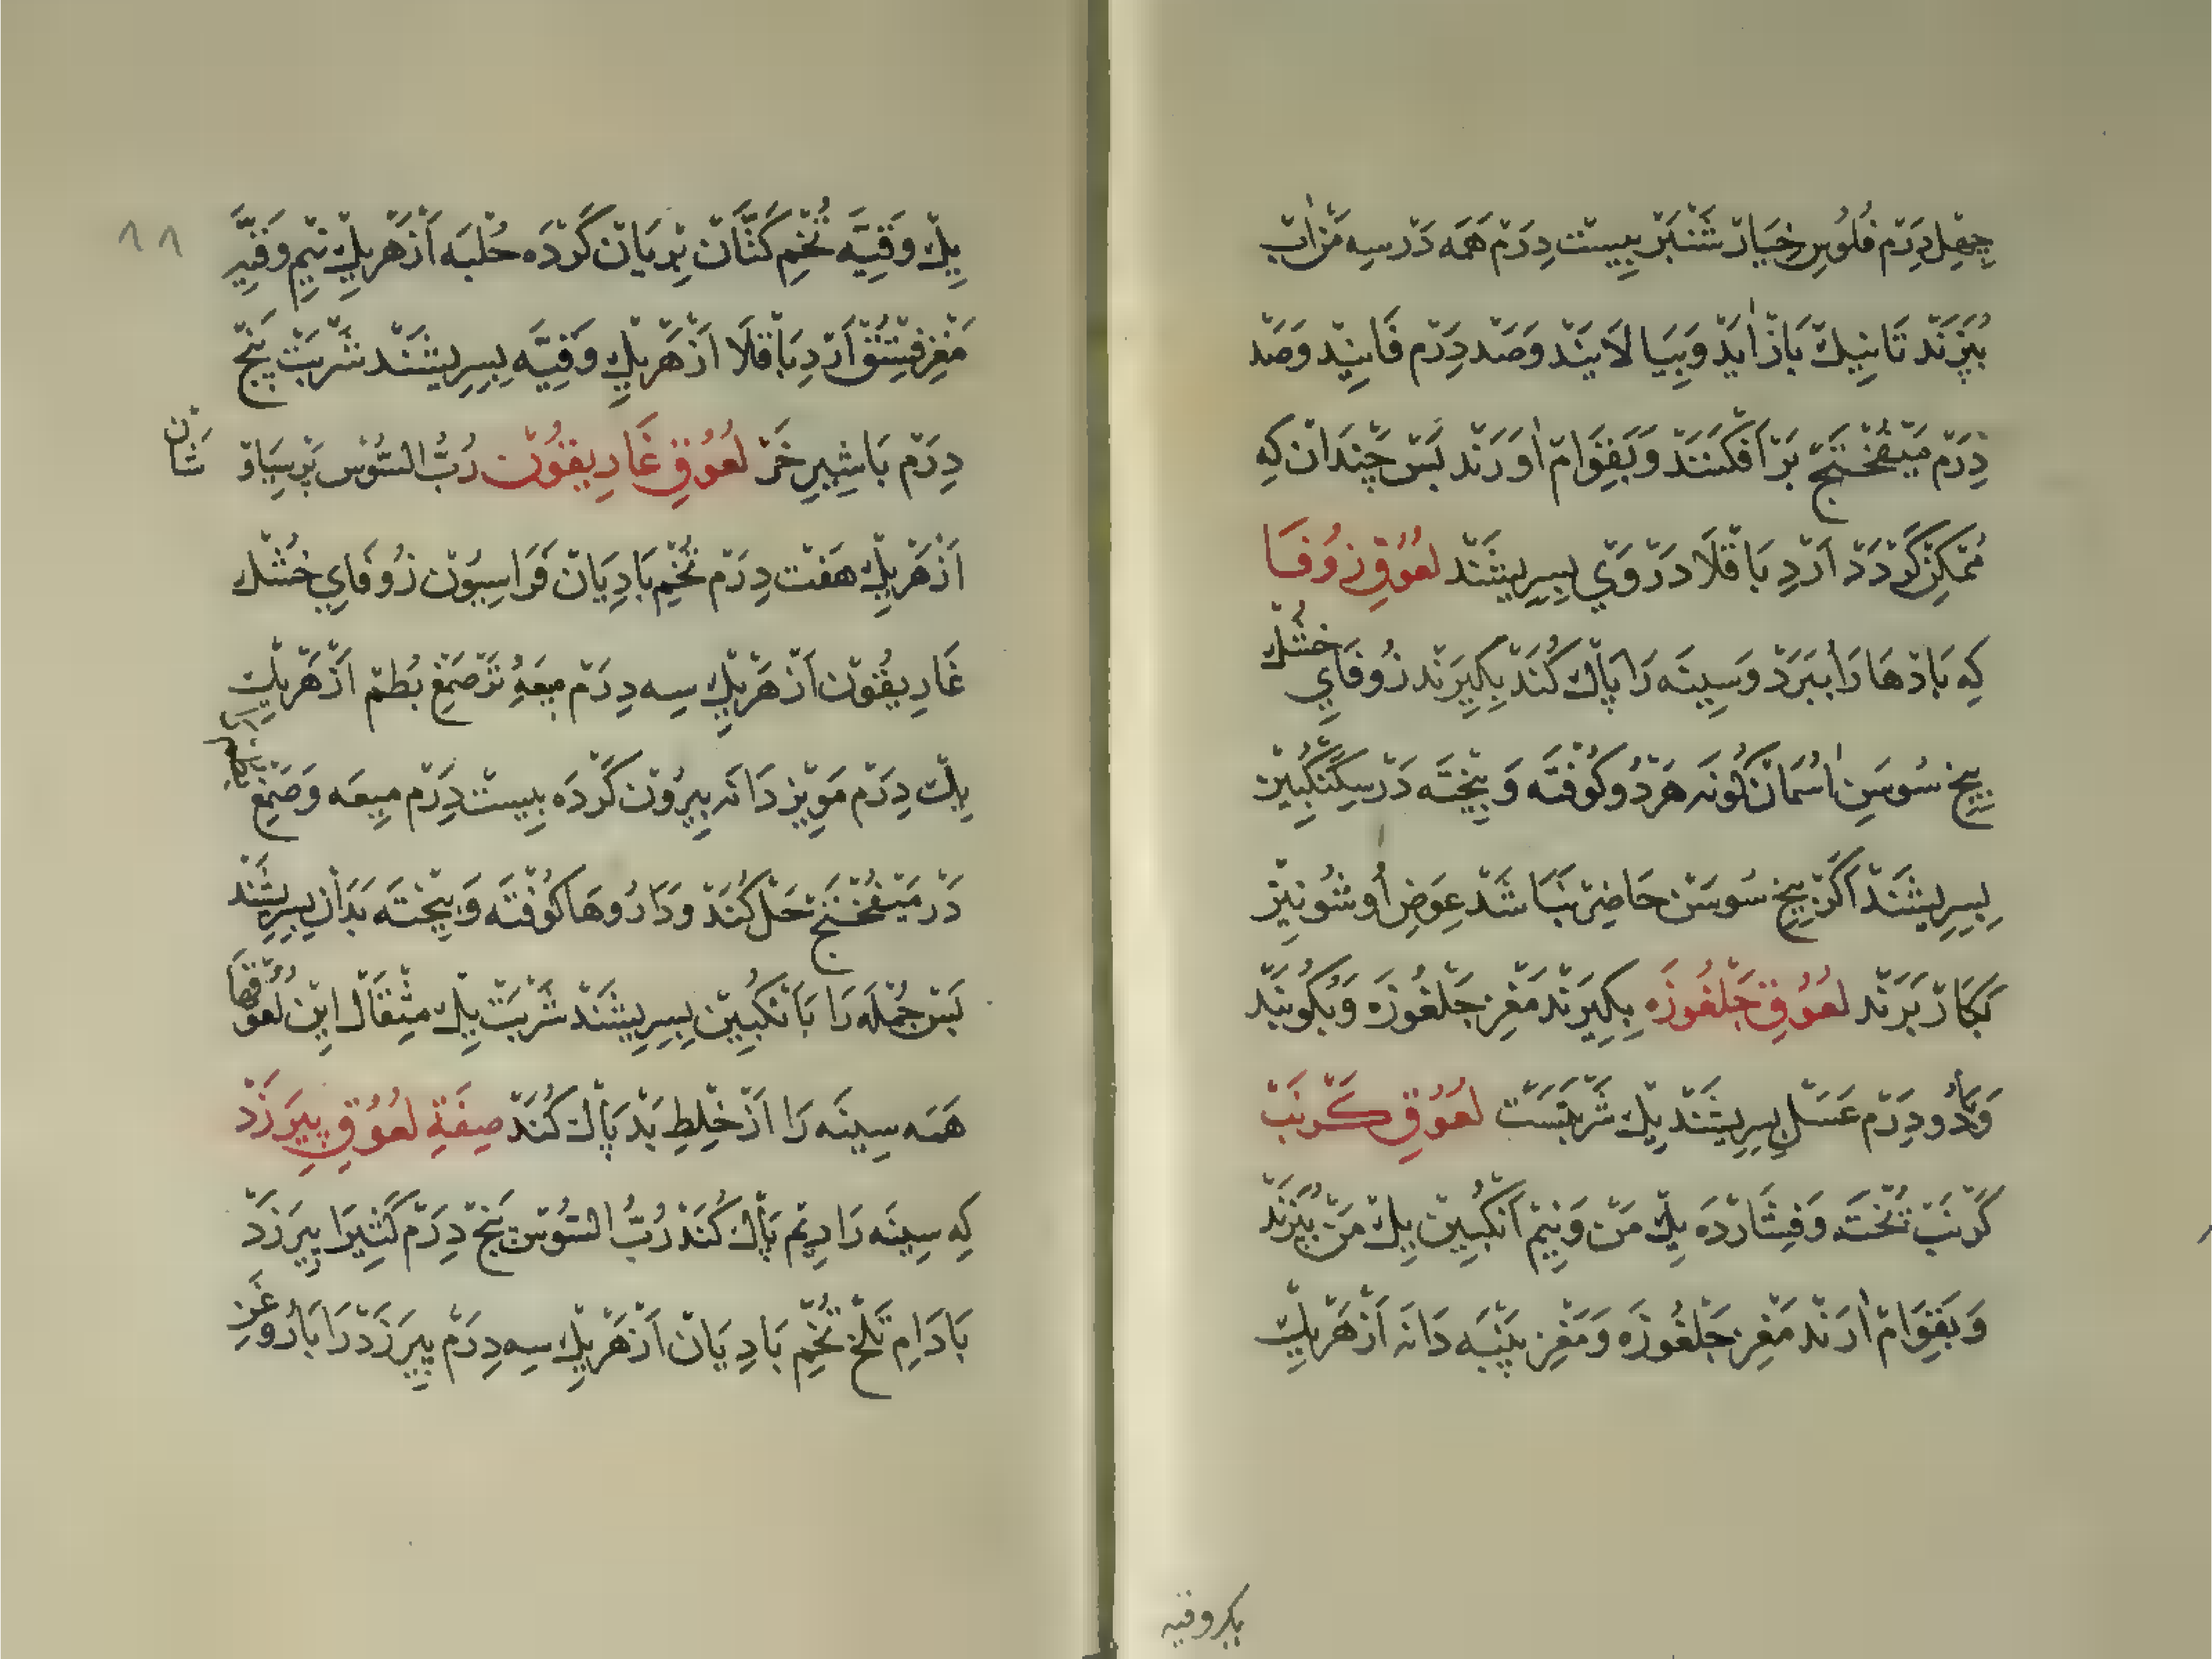 چِهِل دِرَم فُلُوسِ خِیَارْ شَنْبَرْ بِیسْت دِرَم هَمَه دَرْ سِه مَنْ آب
بِپَزَنْد تَا نِیك بَازْ آیَدْ وَبِیَالَایَنْد وَصَد دِرَم فَانِیْد وَصَد
دِرَم مَیْفُخْتَج بَرْ اَفْکَنَنَدْ وَبَقِوَامْ آوَرَنْد بَسْ چَنْدَان کِه
مُمْکِنْ گَرْدَدْ آرْدِ بَاقْلَا دَرْ وَیْ بِسِرِیشَنْد لَعُوْقِ زُوْفَا
کِه بَادْهَا رَا بِبَرَدْ وَسِینَه رَا پَاك کُنَدْ بِکِیرَنْد زُوفَایِ خُشْك
بِیخِ سُوسَنِ آسْمَانْ گُونَه هَرْدُو کُوفْتَه وَبِیخْتَه دَرْ سِکَنْگُبِیْن
بِسِرِیشَنْد اَگَرْ بِیخِ سُوسَنْ حَاضِرْ نَبَاشَدْ عِوَضِ اُو شُونِیْز
بَکَارْ بَرَنْد لَعُوْقِ جَلْغُوزَه بِکِیرَنْد مَغْزِ جَلْغُوزَه وَبِکُوبَنْد
وَبَا دُو دِرَم عَسَل بِسِرِیشَنْد یِكْ شَرْبَتَسْت لَعُوْقِ کَرْنَبْ
کَرْنَبْ پُخْتَه وَفِشَارْدَه یِكْ مَن وَنِیْم اَنْکُبِیْن یِكْ مَنْ بِپَزَنْد
وَبَقِوَامْ آرَنْد مَغْزِ جَلْغُوزَه وَمَغْزِ پَنْبَه دَانَه اَزْ هَرْ یِكْ
یکوقیه
۸۸
یِكْ وَقِیَّه تُخْمِ کَتَّانْ بِرْیَانْ کَرْدَه حُلْبَه اَزْ هَرْ یِكْ نِیْم وَقِیَّه
مَغْزِ فِسْتُقْ آرْدِ بَاقْلَا اَزْ هَرْ یِكْ وَقِیَّه بِسِرِیشَنْد شَرْبَتْ پَنْج
دِرَم بَا شِیرِ خَرْ لَعُوْقِ غَارِیقُونْ رُبُّ السُّوْس پَرْسِیَاوْ شَانْ
اَزْ هَرْ یِكْ هَفْت دِرَم تُخْمِ بَادِیَانْ فَرَاسِیُونْ زُوفَایِ خُشْك
غَارِیقُونْ اَزْ هَرْ یِكْ سِه دِرَم مِیعَهِٔ تَرْ صَمْغِ بُطْم اَزْ هَرْ یِكْ
یِكْ دِرَمْ مَوِیْز دَانَه بِیرُونْ کَرْدَه بِیسْت دِرَمْ مِیعَه وَصَمْغِ بطم را
دَرْ مَیْفُخْتَجْ حَل کُنَدْ وَدَارُوهَا کُوفْتَه وَبِیخْتَه بَدَانْ بِسِرِیشَنْد
بَسْ جُمْلَه رَا بَا اَنْکُبِیْن بِسِرِیشَنْد شَرْبَتْ یِكْ مِثْقَالْ اِیْن لَعُوقْهَا
هَمَه سِینَه رَا اَزْ خِلْطِ بَدْ پَاك کُنَدْ صِفَةِ لَعُوْقِ بِیرَزَدْ
کِه سِینَه رَا دِیم پَاك کُنَدْ رُبُّ السُّوْسْ پَنْجْ دِرَمْ کَثِیرَا بِیرَزَدْ
بَادَامِ تَلْخْ تُخْمِ بَادِیَانْ اَزْ هَرْ یِكْ سِه دِرَمْ بِیرَزَدْ رَا بَا رُوغَنِ